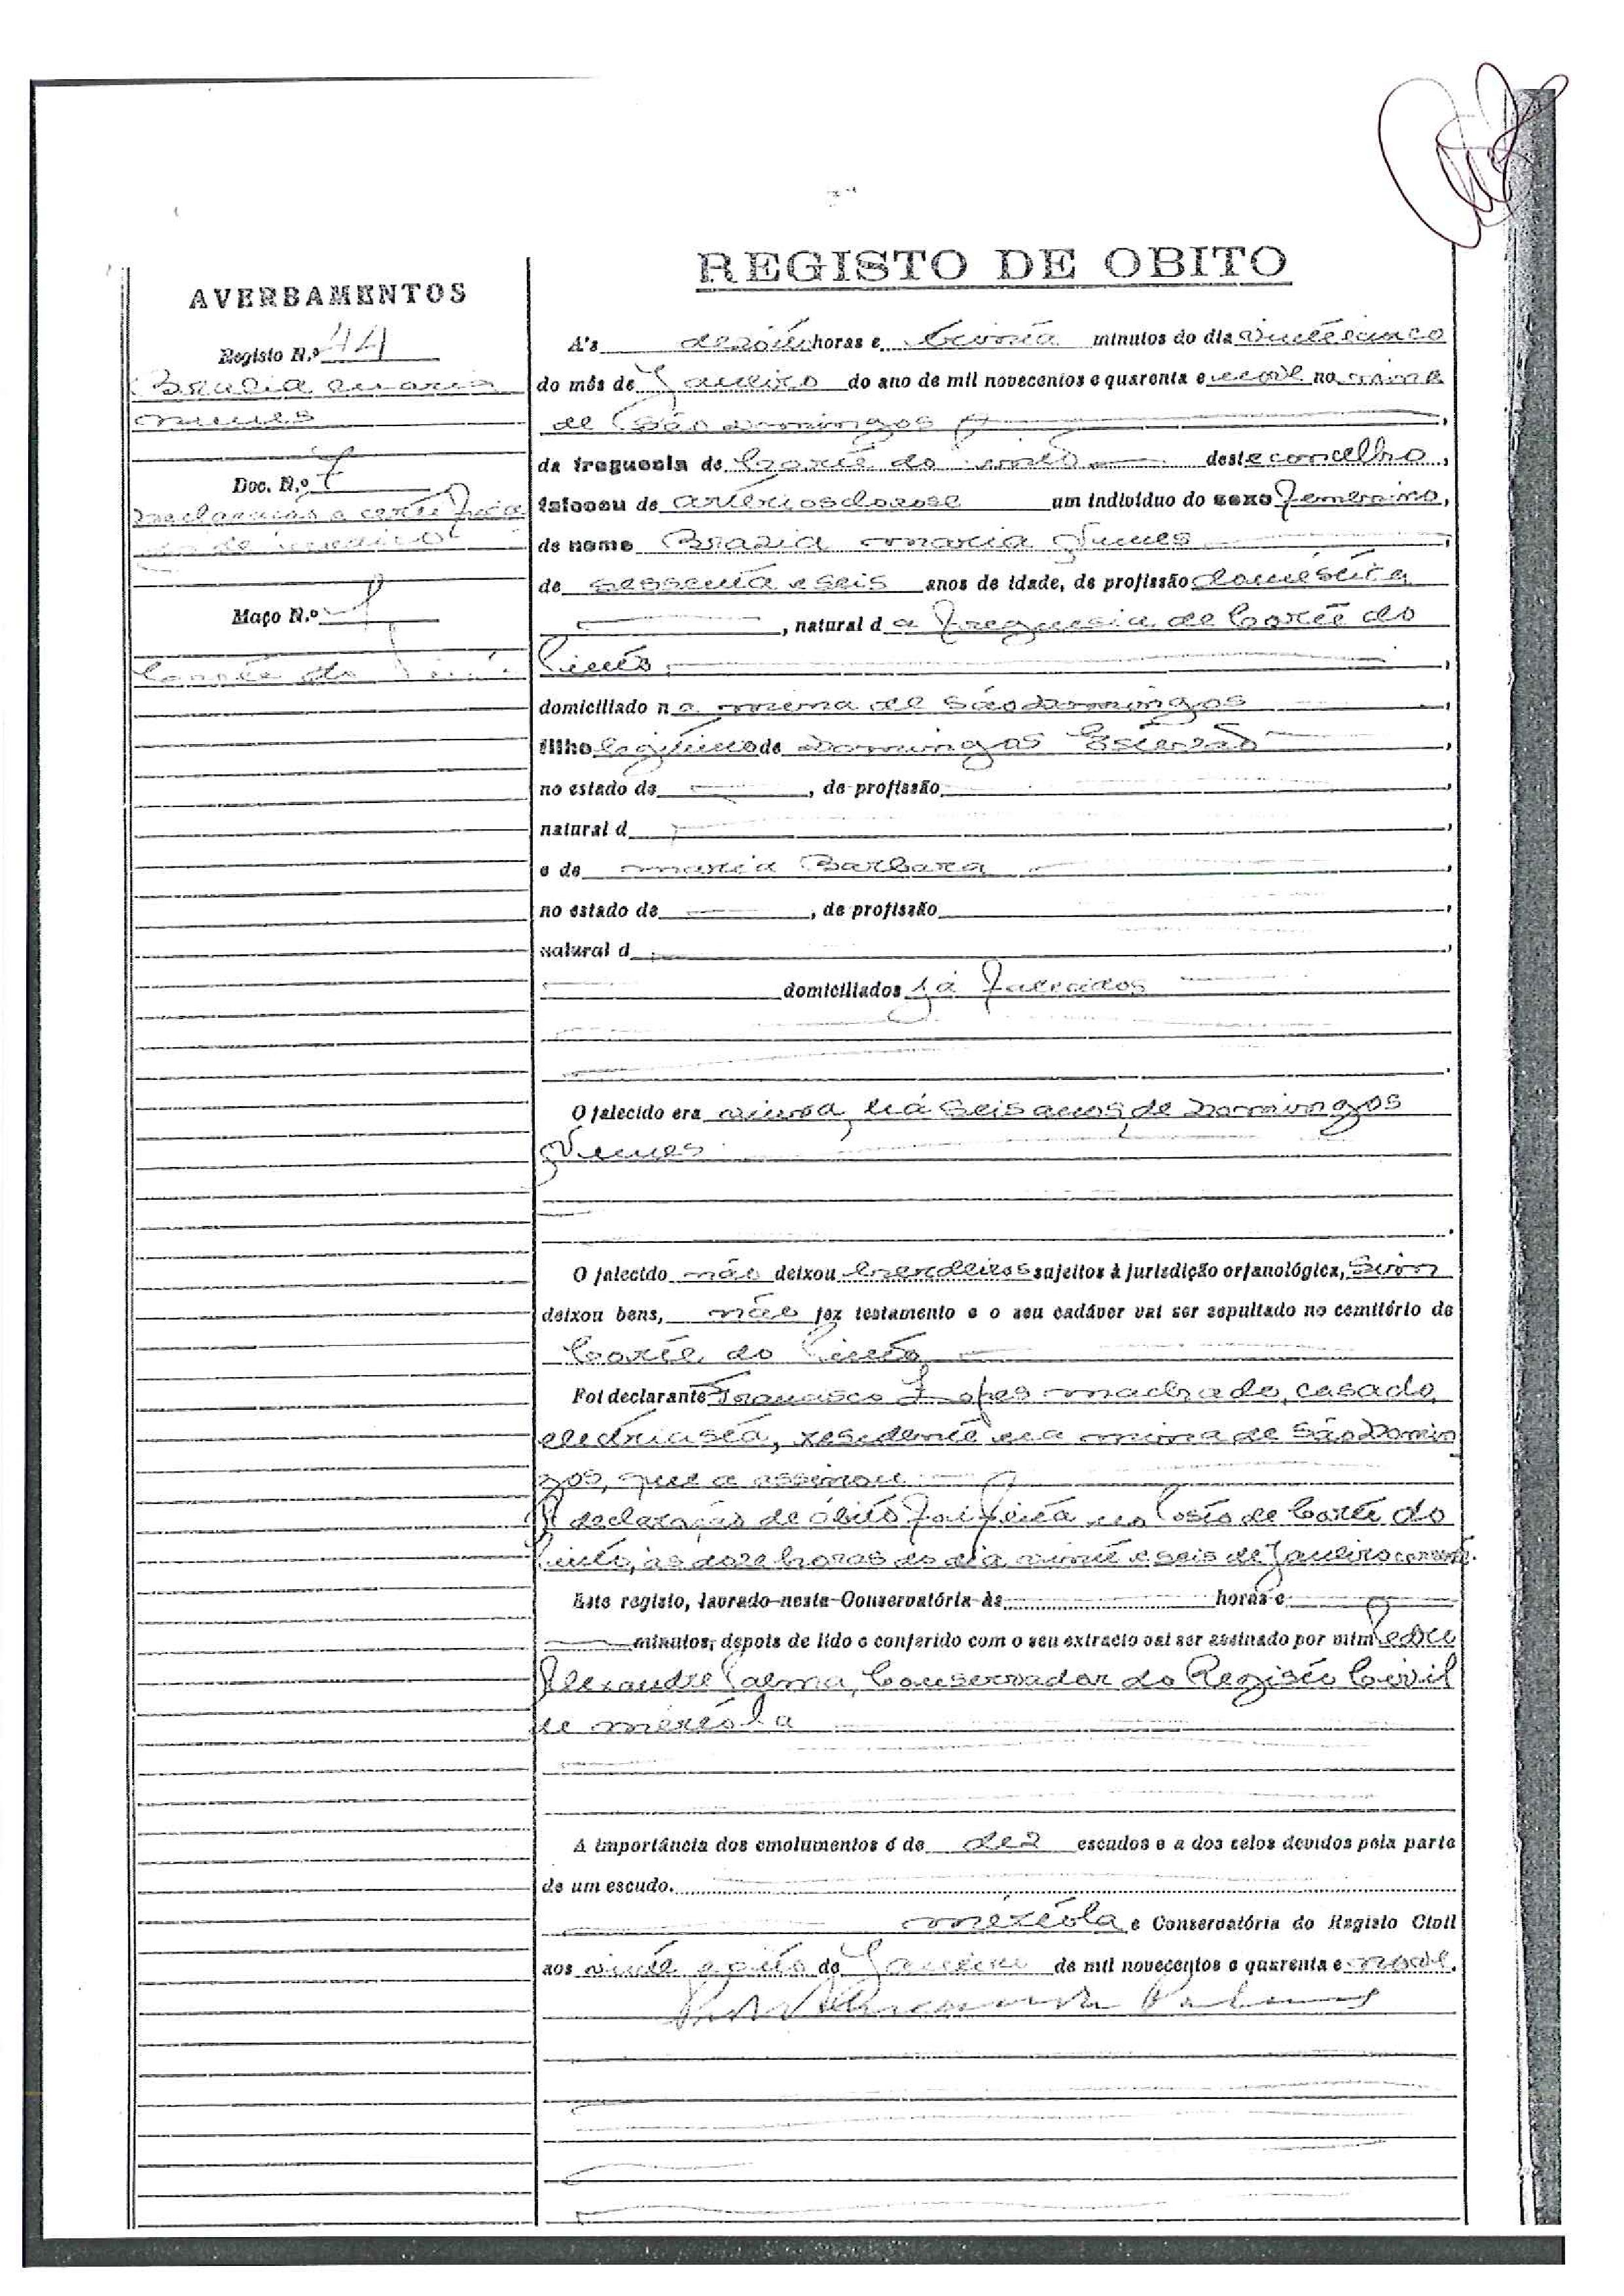 REGISTO DE OBITO
AVERBAMENTOS
Registo N.º 44
Brazia Maria
Nunes
Doc. N.º 7
Declaração e certifica
do de médico
Maço N.º 1
Corte do Pinto
A's dezoito horas e trinta minutos do dia vinte e cinco
do mês de Janeiro do ano de mil novecentos e quarenta e nove na mina
de São Domingos
da freguesia de Corte do Pinto deste concelho,
faleceu de arteriosclorose um indivíduo do sexo femenino,
de nome Brazia Maria Nunes,
de sessenta e seis anos de idade, de profissão doméstica
, natural da freguesia de Corte do
Pinto,
domiciliado na mina de São Domingos,
filho legitimo de Domingos
no estado de , de profissão ,
natural d ,
e de Maria Barbara ,
no estado de , de profissão ,
natural d ,
domiciliados já falecidos
O falecido era viuva, há seis anos, de Domingos
Nunes
O falecido não deixou herdeiros sujeitos à jurisdição orfanológica,
deixou bens, não fez testamento e o seu cadáver vai ser sepultado no cemitério de
Corte do Pinto
Foi declarante Francisco Lopes Machado, casado,
eletricista, residente na mina de São Domin
gos, que a assinou
A declaração de óbito foi feita no Posto de Corte do
Pinto, às doze horas do dia vinte e seis de Janeiro corrente.
Este registo, lavrado nesta Conservatória às horas e
minutos, depois de lido e conferido com o seu extracto vai ser assinado por mim Pedro
Alexandre Palma, Conservador do Registo Civil
de Mértola
A importância dos emolumentos é de dez escudos e a dos selos devidos pela parte
de um escudo.
Mértola e Conservatória do Registo Civil
aos vinte e oito de Janeiro de mil novecentos e quarenta e nove.